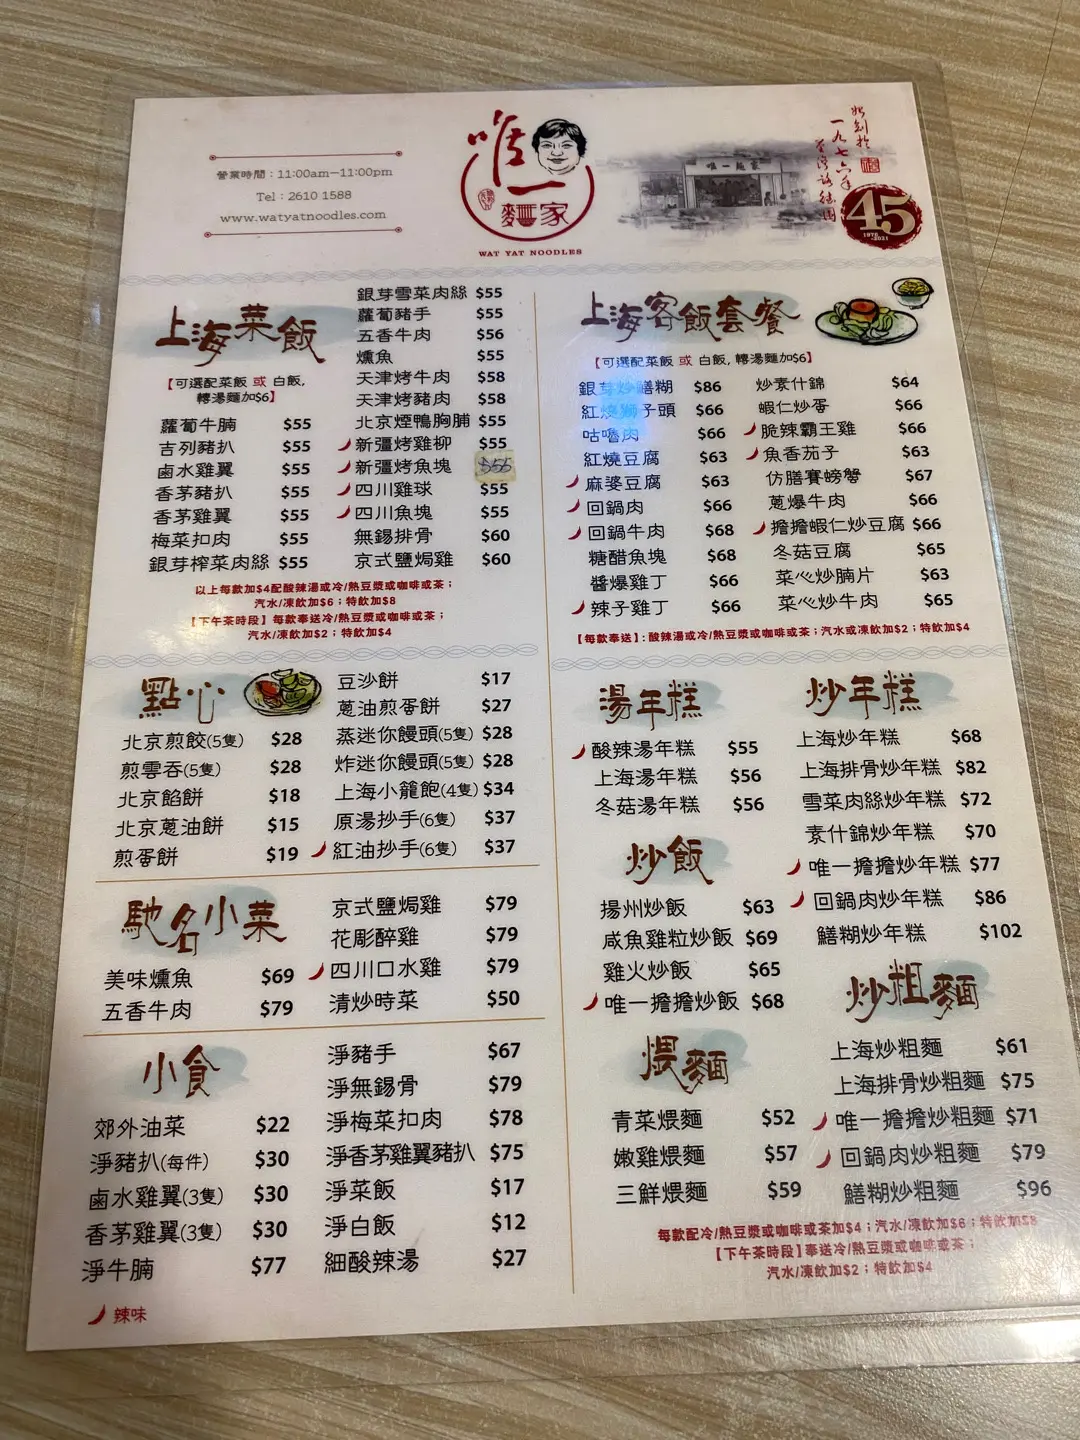 營業時間：11:00am－11:00pm
Tel : 2610 1588
www.watyatnoodles.com
唯一
麵家
WAT YAT NOODLES
唯一麵家
始創於
一九七六年
45
1976
-2021
上海菜飯
【可選配菜飯 或 白飯,
轉湯麵加$6】
蘿蔔牛腩 $55
吉列豬扒 $55
鹵水雞翼 $55
香茅豬扒 $55
香茅雞翼 $55
梅菜扣肉 $55
銀芽榨菜肉絲 $55
銀芽雪菜肉絲 $55
蘿蔔豬手 $55
五香牛肉 $56
燻魚 $55
天津烤牛肉 $58
天津烤豬肉 $58
北京煙鴨胸脯 $55
新疆烤雞柳 $55
新彊烤魚塊 $55
四川雞球 $55
四川魚塊 $55
無錫排骨 $60
京式鹽焗雞 $60
以上每款加$4配酸辣湯或冷/熱豆漿或咖啡或茶；
汽水/凍飲加$6；特飲加$8
【下午茶時段】每款奉送冷/熱豆漿或咖啡或茶；
汽水/凍飲加$2；特飲加$4
上海客飯套餐
【可選配菜飯 或 白飯, 轉湯麵加$6】
銀芽炒鱔糊 $86
紅燒獅子頭 $66
咕嚕肉 $66
紅燒豆腐 $63
麻婆豆腐 $63
回鍋肉 $66
回鍋牛肉 $68
糖醋魚塊 $68
醬爆雞丁 $66
辣子雞丁 $66
炒素什錦 $64
蝦仁炒蛋 $66
脆辣霸王雞 $66
魚香茄子 $63
仿膳賽螃蟹 $67
蔥爆牛肉 $66
擔擔蝦仁炒豆腐 $66
冬菇豆腐 $65
菜心炒腩片 $63
菜心炒牛肉 $65
【每款奉送】: 酸辣湯或冷/熱豆漿或咖啡或茶；汽水或凍飲加$2；特飲加$4
點心
北京煎餃(5隻) $28
煎雲吞(5隻) $28
北京餡餅 $18
北京蔥油餅 $15
煎蛋餅 $19
豆沙餅 $17
蔥油煎蛋餅 $27
蒸迷你饅頭(5隻) $28
炸迷你饅頭(5隻) $28
上海小籠飽(4隻) $34
原湯抄手(6隻) $37
紅油抄手(6隻) $37
馳名小菜
美味燻魚 $69
五香牛肉 $79
京式鹽焗雞 $79
花彫醉雞 $79
四川口水雞 $79
清炒時菜 $50
小食
郊外油菜 $22
淨豬扒(每件) $30
鹵水雞翼(3隻) $30
香茅雞翼(3隻) $30
淨牛腩 $77
淨豬手 $67
淨無錫骨 $79
淨梅菜扣肉 $78
淨香茅雞翼豬扒 $75
淨菜飯 $17
淨白飯 $12
細酸辣湯 $27
辣味
湯年糕
酸辣湯年糕 $55
上海湯年糕 $56
冬菇湯年糕 $56
炒飯
揚州炒飯 $63
咸魚雞粒炒飯 $69
雞火炒飯 $65
唯一擔擔炒飯 $68
煨麵
青菜煨麵 $52
嫩雞煨麵 $57
三鮮煨麵 $59
炒年糕
上海炒年糕 $68
上海排骨炒年糕 $82
雪菜肉絲炒年糕 $72
素什錦炒年糕 $70
唯一擔擔炒年糕 $77
回鍋肉炒年糕 $86
鱔糊炒年糕 $102
炒粗麵
上海炒粗麵 $61
上海排骨炒粗麵 $75
唯一擔擔炒粗麵 $71
回鍋肉炒粗麵 $79
鱔糊炒粗麵 $96
每款配冷/熱豆漿或咖啡或茶加$4；汽水/凍飲加$6；特飲加$8
【下午茶時段】奉送冷/熱豆漿或咖啡或茶；
汽水/凍飲加$2；特飲加$4